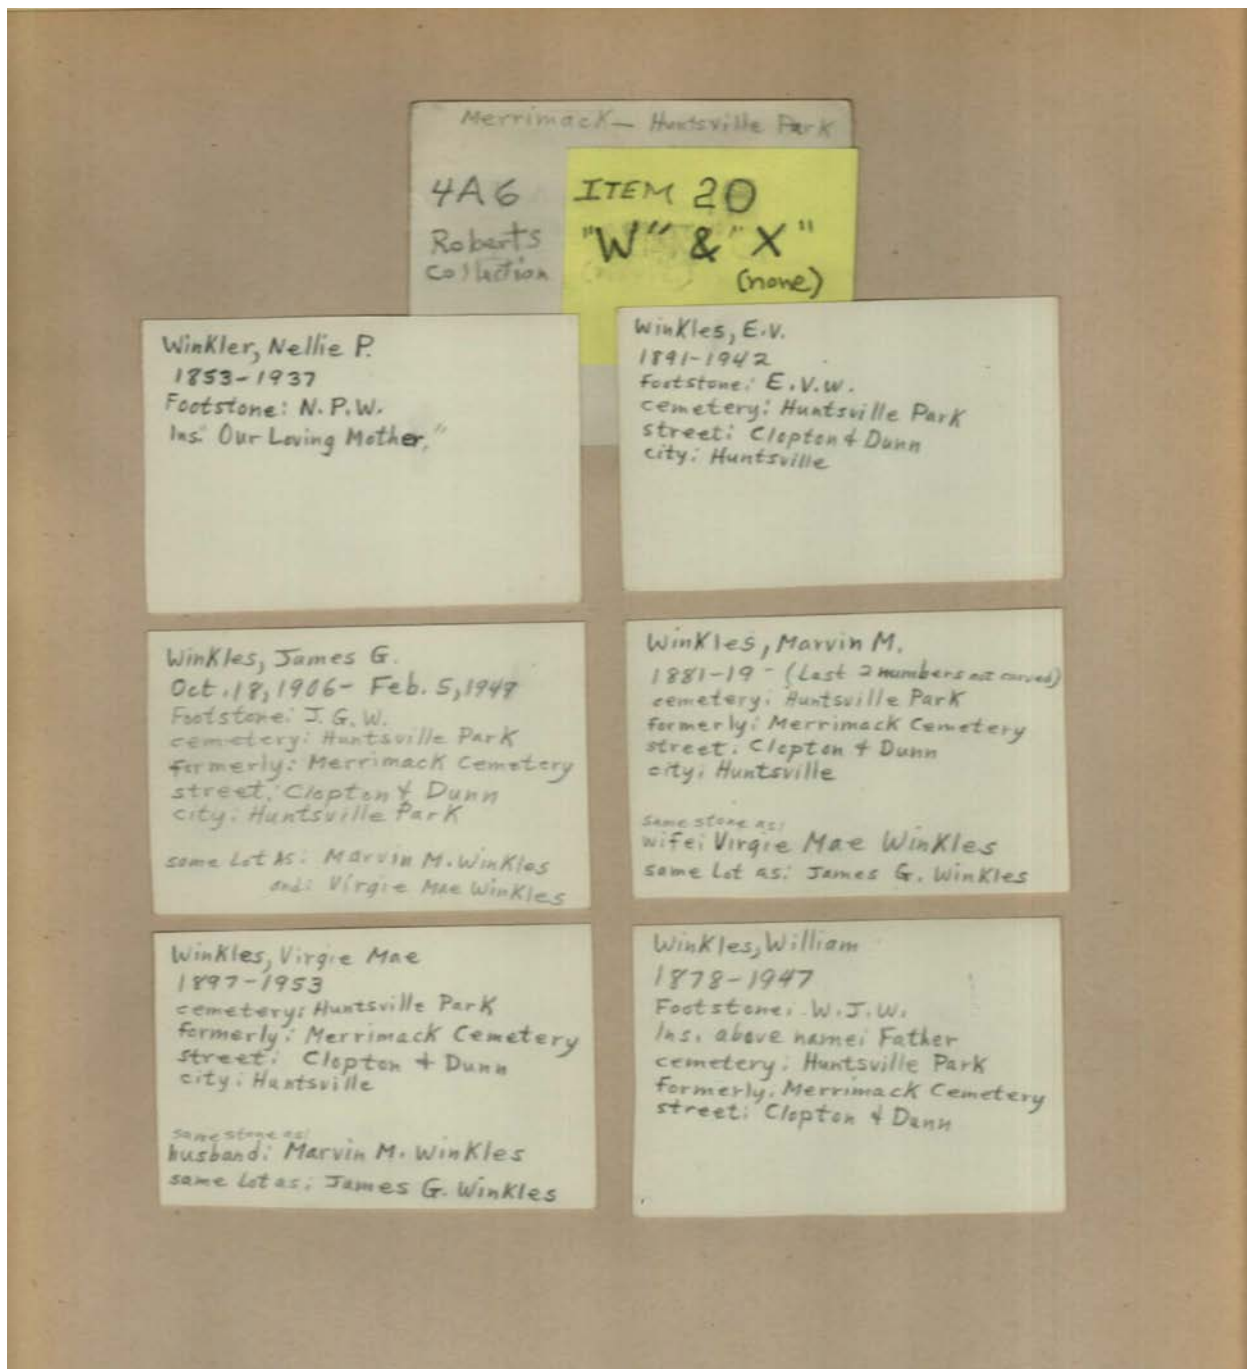 Merrimack— Huntsville Park
4A6
Roberts
Collection
ITEM 20
"W" & "X"
(none)
Winkler, Nellie P.
1853-1937
Footstone: N.P.W.
Ins." Our Loving Mother."
Winkles, E.V.
1891-1942
Footstone: E.V.W.
cemetery: Huntsville Park
street: Clopton & Dunn
city: Huntsville
Winkles, James G.
Oct.18,1906- Feb. 5,1949
Footstone: J.G.W.
cemetery: Huntsville Park
formerly: Merrimack Cemetery
street: Clopton & Dunn
city: Huntsville Park
same Lot As: Marvin M. Winkles
and: Virgie Mae Winkles
Winkles, Marvin M.
1881-19 - (Last 2 numbers not carved)
cemetery: Huntsville Park
formerly: Merrimack Cemetery
street: Clopton & Dunn
city: Huntsville
same stone as:
wife: Virgie Mae Winkles
same Lot as: James G. Winkles
Winkles, Virgie Mae
1897-1953
cemetery: Huntsville Park
formerly: Merrimack Cemetery
street: Clopton & Dunn
city: Huntsville
same stone as:
husband: Marvin M. Winkles
same Lot as: James G. Winkles
Winkles, William
1878-1947
Footstone: W.J.W.
Ins. above name: Father
cemetery: Huntsville Park
formerly: Merrimack Cemetery
street: Clopton & Dunn